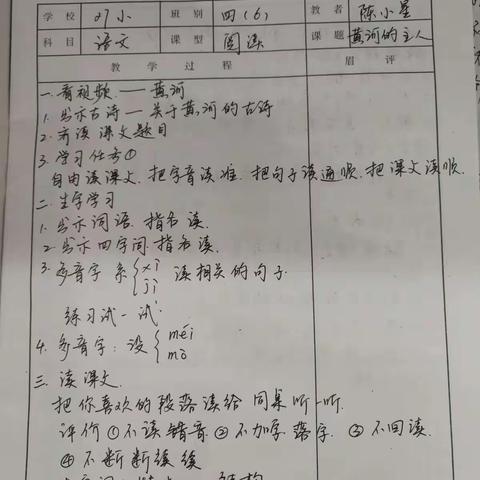 学校 实小 班别 四(6) 教者 陈小星
科目 语文 课型 阅读 课题 黄河的主人
教学过程 眉评
一.看视频.——黄河
1.出示古诗——关于黄河的古诗
2.齐读课文题目
3.学习任务①
自由读课文,把字音读准.把句子读通顺.把课文读顺.
二.生字学习
1.出示词语.指名读.
2.出示四字词.指名读.
3.多音字 系{xì jì 读相关的句子.
练习试一试.
4.多音字:没{méi mò
三.读课文.
把你喜欢的段落读给同桌听一听.
评价①不读错音②不加字落字.③不回读.
④不断断续续